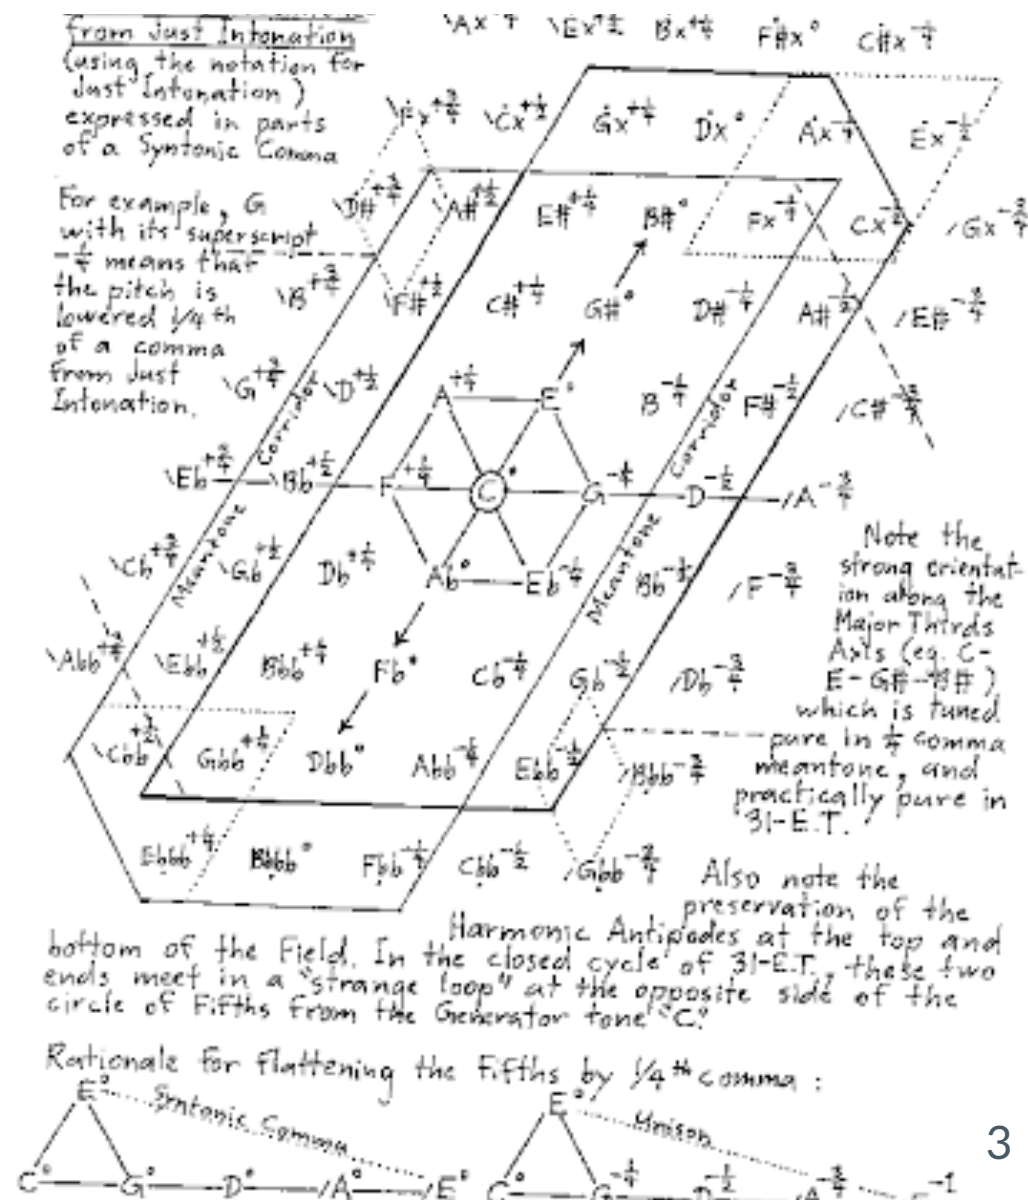 from Just Intonation
(using the notation for
Just Intonation)
expressed in parts
of a Syntonic Comma
For example, G
with its superscript
-1/4 means that
the pitch is
lowered 1/4th
of a comma
from Just
Intonation.
\Ax \Ex+1/2 Bx+1/4 F#x° C#x-1/4
\Fx+3/4 \Cx+1/2 Gx+1/4 Dx° Ax-1/4 Ex-1/2
\D#+3/4 A#+1/2 E#+1/4 B#° Fx-1/4 Cx-1/2 /Gx-3/4
\B+3/4 \F#+1/2 C#+1/4 G#° D#-1/4 A#-1/2 /E#-3/4
\G+3/4 \D+1/2 A+1/4 E° B-1/4 F#-1/2 /C#-3/4
Corridor
Corridor
\Eb+3/4 \Bb+1/2 F+1/4 C° G-1/4 D-1/2 /A-3/4
\Cb+3/4 \Gb+1/2 Db+1/4 Ab° Eb-1/4 Bb-1/2 /F-3/4
Meantone
Meantone
\Abb+3/4 \Ebb+1/2 Bbb+1/4 Fb° Cb-1/4 Gb-1/2 /Db-3/4
\Cbb+1/2 Gbb+1/4 Dbb° Abb-1/4 Ebb-1/2 /Bbb-3/4
Ebbb+1/4 Bbbb° Fbb-1/4 Cbb-1/2 /Gbb-3/4
Note the
strong orientat-
ion along the
Major Thirds
Axis (eg. C-
E-G#-B#)
which is tuned
pure in 1/4 comma
meantone, and
practically pure in
31-E.T.
Also note the
preservation of the
Harmonic Antipodes at the top and
bottom of the Field. In the closed cycle of 31-E.T., these two
ends meet in a "strange loop" at the opposite side of the
circle of Fifths from the Generator tone "C."
Rationale for flattening the Fifths by 1/4th comma:
E° Syntonic Comma
E° Unison
C° G° D° /A° /E°
C° G-1/4 D-1/2 A-3/4 -1
3